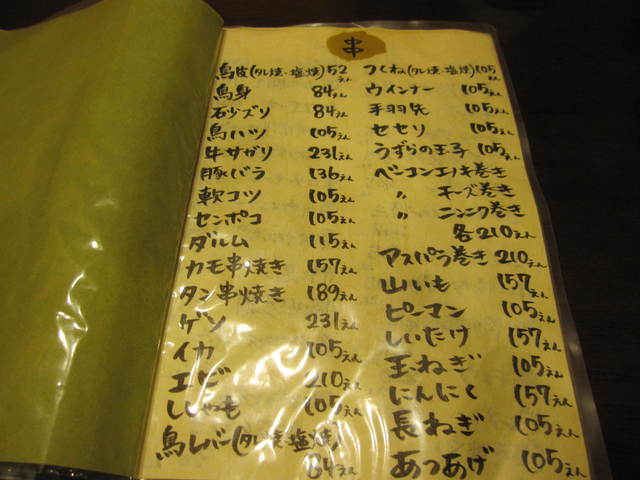 串
鳥皮(タレ焼・塩焼)52えん
鳥身 84えん
砂ズリ 84えん
鳥ハツ 105えん
牛サガリ 231えん
豚バラ 136えん
軟コツ 105えん
センポコ 105えん
ダルム 115えん
カモ串焼き 157えん
タン串焼き 189えん
ゲソ 231えん
イカ 105えん
エビ 210えん
ししゃも 105えん
鳥レバー(タレ焼・塩焼)
84えん
つくね(タレ焼・塩焼)105えん
ウインナー 105えん
手羽先 105えん
セセリ 105えん
うずらの玉子 105えん
ベーコンエノキ巻き
〃 チーズ巻き
〃 ニンニク巻き
各210えん
アスパラ巻き 210えん
山いも 157えん
ピーマン 105えん
しいたけ 157えん
玉ねぎ 105えん
にんにく 157えん
長ねぎ 105えん
あつあげ 105えん